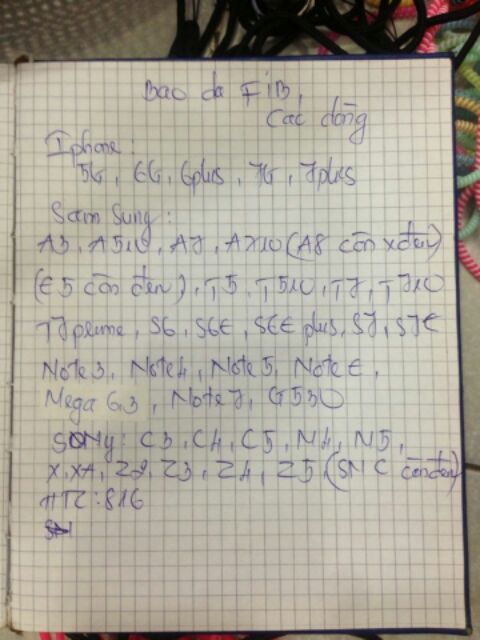 Bao da FIB,
Các dòng
Iphone:
5G, 6G, 6plus, 7G, 7plus
Sam Sung:
A3, A510, A7, A710 (A8 còn x đen)
(E5 còn đen), J5, J510, J7, J710
J7 prime, S6, S6E, S6E plus, S7, S7E
Note 3, Note 4, Note 5, Note E,
Mega 6.3, Note 7, G530
SONy: C3, C4, C5, M4, M5,
X, XA, Z2, Z3, Z4, Z5 (SN C còn đen)
HTC: 816